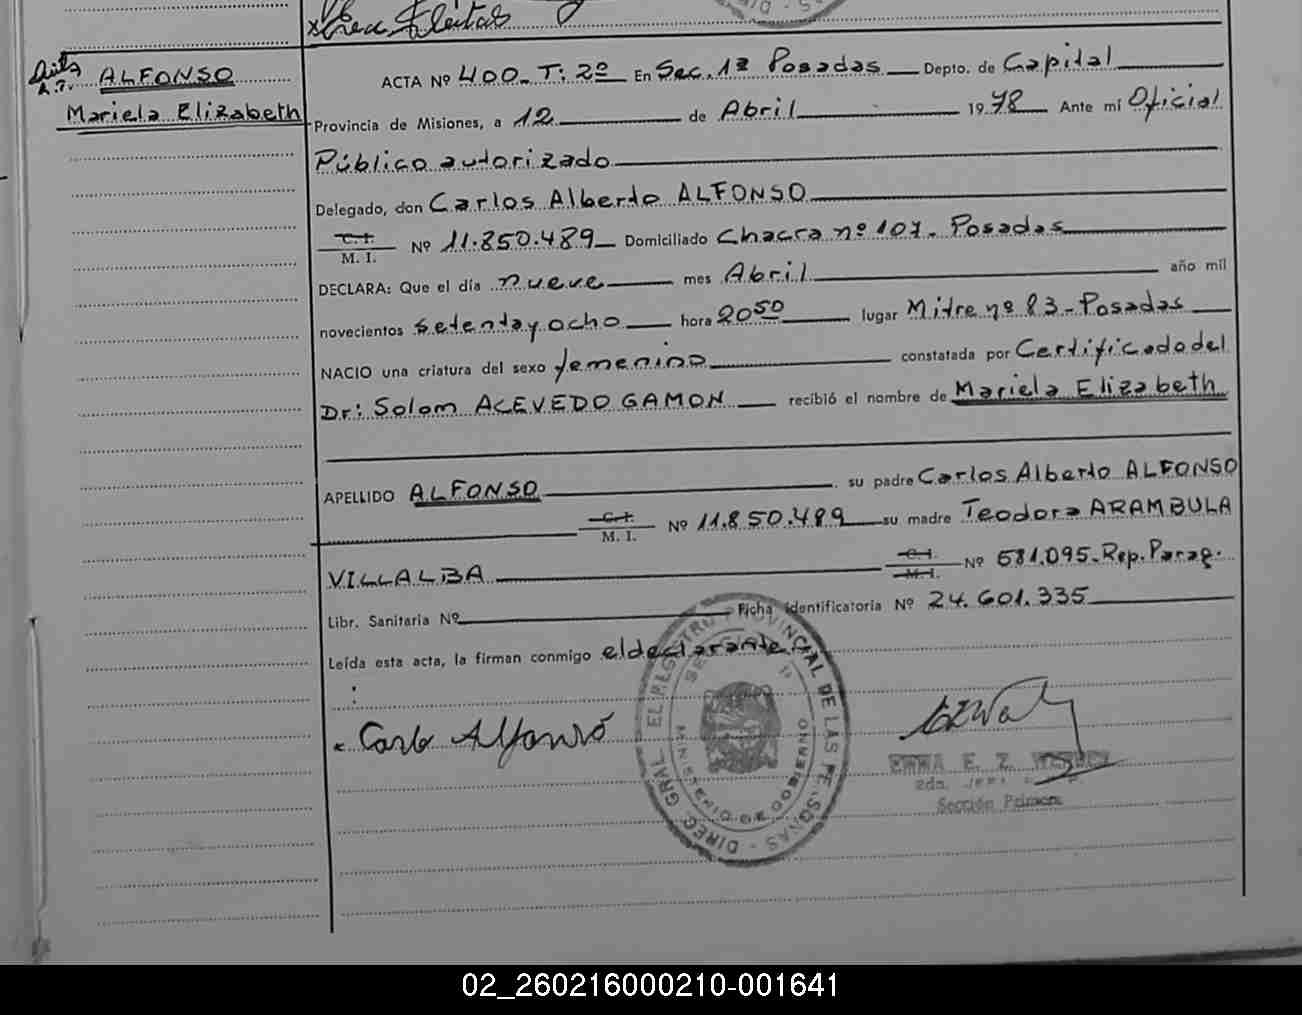 ALFONSO
Mariela Elizabeth
ACTA Nº 400. T: 2º En Sec. 1ª Posadas Depto. de Capital
Provincia de Misiones, a 12 de Abril 1978 Ante mí Oficial
Público autorizado
Delegado, don Carlos Alberto ALFONSO
C. I.
M. I. Nº 11.850.489 Domiciliado Chacra nº 107. Posadas
DECLARA: Que el día nueve mes Abril año mil
novecientos setenta y ocho hora 20⁵⁰ lugar Mitre nº 83 - Posadas
NACIO una criatura del sexo femenino constatada por Certificado del
Dr: Solom ACEVEDO GAMON recibió el nombre de Mariela Elizabeth
APELLIDO ALFONSO su padre Carlos Alberto ALFONSO
C. I.
M. I. Nº 11.850.489 su madre Teodora ARAMBULA
VILLALBA C. I. M. I. Nº 581.095. Rep. Parag.
Libr. Sanitaria Nº Ficha identificatoria Nº 24.601.335
Leída esta acta, la firman conmigo el declarante
DIREC. GRAL. EL REGISTRO PROVINCIAL DE LAS PERSONAS
MINISTERIO DE GOBIERNO
EMMA E. Z.
2da. Jefe
Sección Primera
02_260216000210-001641